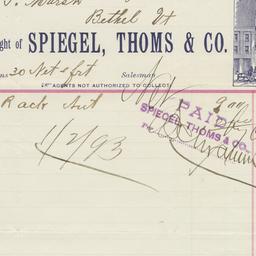 Marsh
Bethel Vt
ght of SPIEGEL, THOMS & CO.
ms 30 Net & frt Salesman
AGENTS NOT AUTHORIZED TO COLLECT.
Rack Ant
PAID
SPIEGEL THOMS & CO.
11/2/93